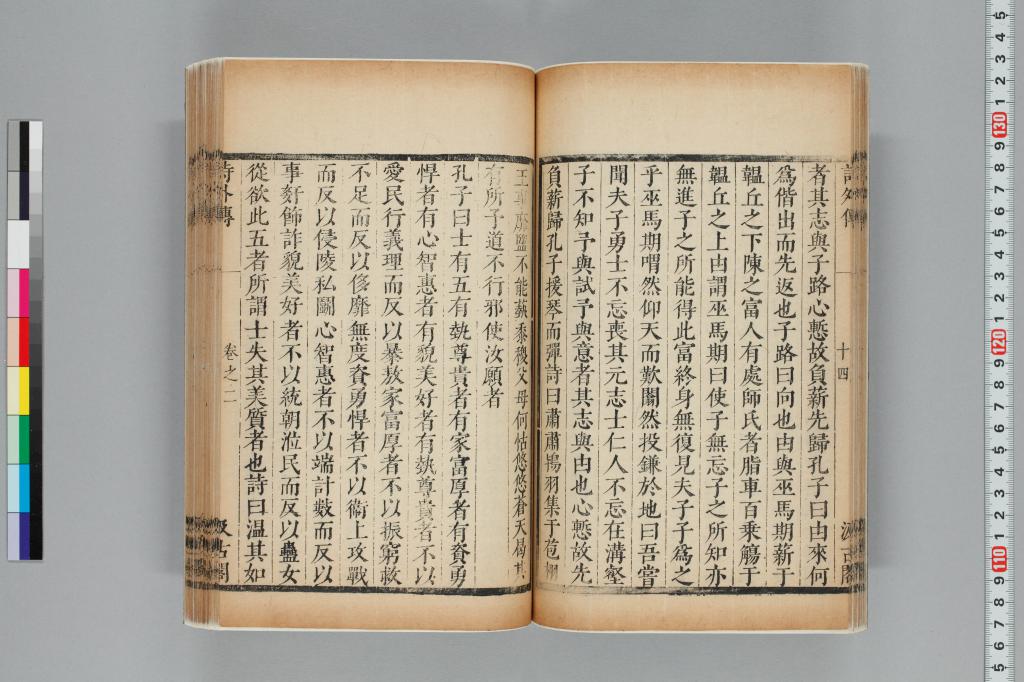 詩外傳
十四
汲古閣
者其志與子路心慙故負薪先歸孔子曰由來何
爲偕出而先返也子路曰向也由與巫馬期薪于
韞丘之下陳之富人有處師氏者脂車百乘觴于
韞丘之上由謂巫馬期曰使子無忘子之所知亦
無進子之所能得此富終身無復見夫子子爲之
乎巫馬期喟然仰天而歎闟然投鎌於地曰吾嘗
聞夫子勇士不忘喪其元志士仁人不忘在溝壑
子不知予與試予與意者其志與由也心慙故先
負薪歸孔子援琴而彈詩曰肅肅鴇羽集于苞栩
王事靡盬不能蓺黍稷父母何怙悠悠蒼天曷其
有所予道不行邪使汝願者
孔子曰士有五有埶尊貴者有家富厚者有資勇
悍者有心智惠者有貌美好者有埶尊貴者不以
愛民行義理而反以暴敖家富厚者不以振窮救
不足而反以侈靡無度資勇悍者不以衛上攻戰
而反以侵陵私鬭心智惠者不以端計數而反以
事奸飾詐貌美好者不以統朝涖民而反以蠱女
從欲此五者所謂士失其美質者也詩曰温其如
詩外傳
卷之二
汲古閣